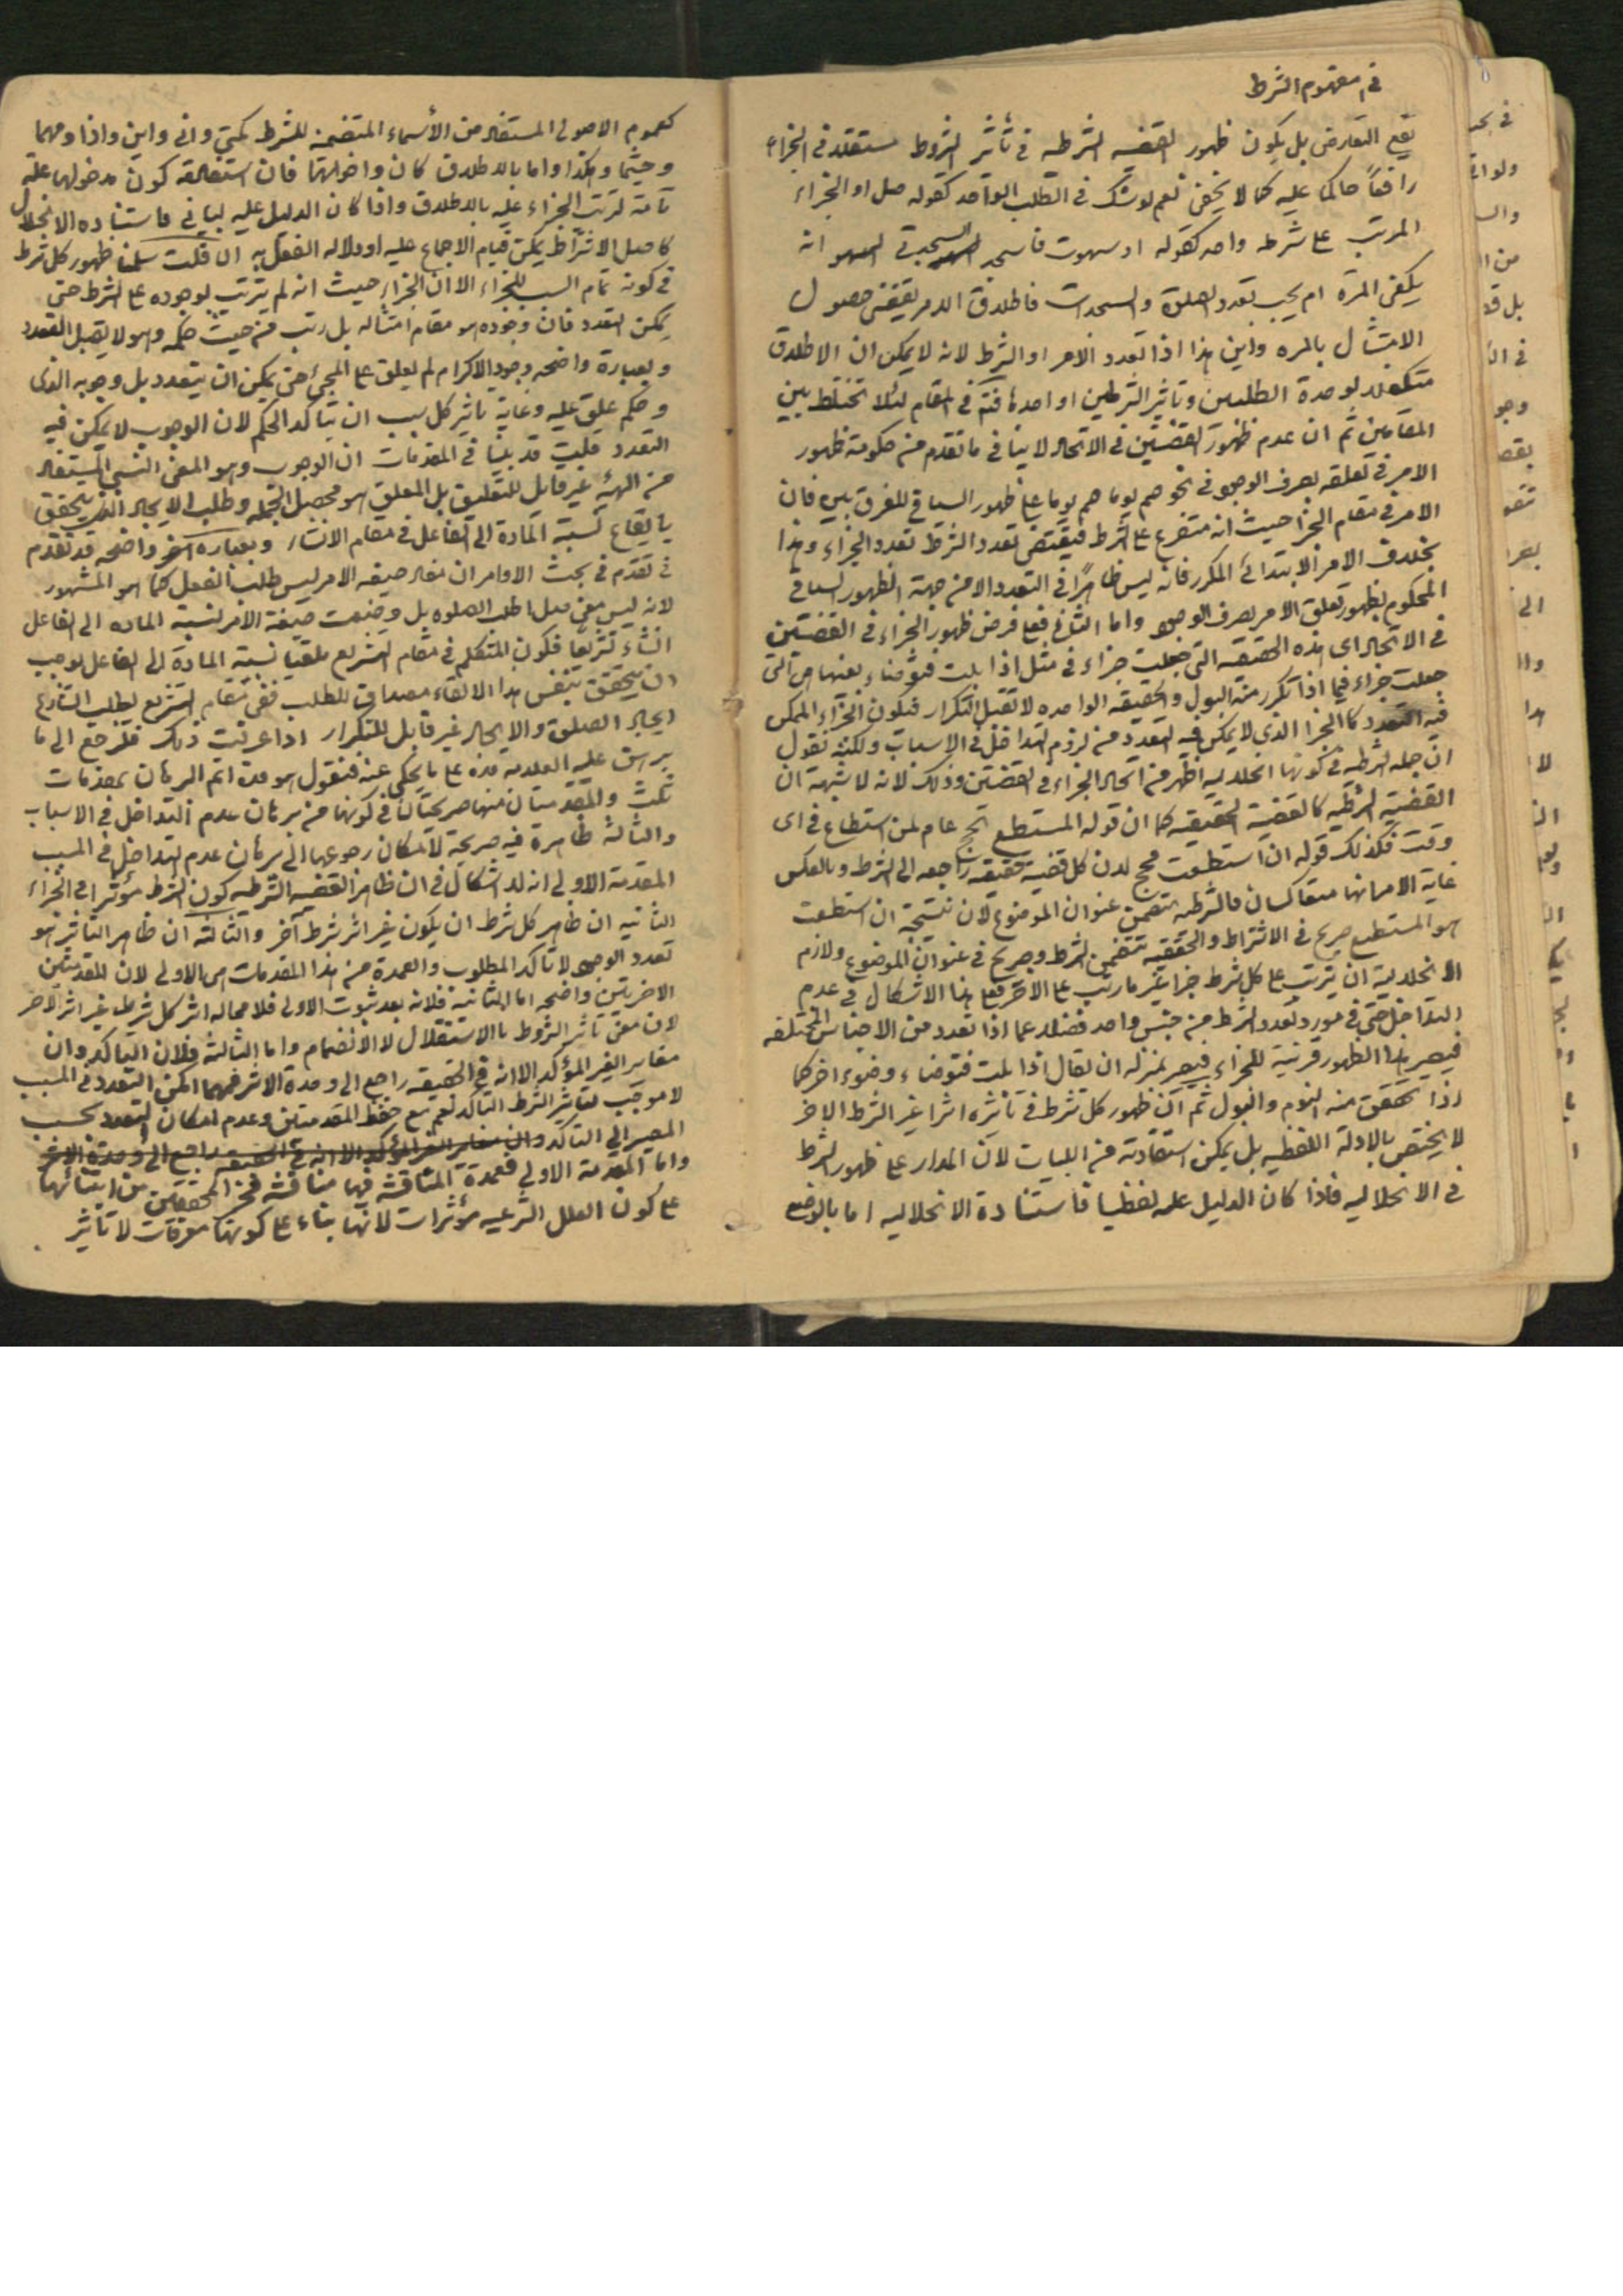 في مفهوم الشرط
يقع التعارض بل يكون ظهور القضية الشرطية في تأثير الشروط مستقلة في الجزاء
رافعاً حاكما عليه كما لا يخفى نعم لو شك في الطلب الواحد كقوله صل او الجزاء
المرتب على شرط واحد كقوله اذ سهوت فاسجد السجدتي السهو انه
يكفي المرة ام يجب تعدد الصلوة والسجدات فاطلاق الامر يقتضي حصول
الامتثال بالمره واين هذا اذا تعدد الامر او الشرط لانه لا يمكن ان الاطلاق
متكفلا لوحدة الطلبين وتأثير الشرطين او احدهما فتم في المقام لئلا تختلط بين
المقامين ثم ان عدم ظهور القضيتين في الاتحاد لا ينافي ما تقدم من حكومة ظهور
الامر في تعلقه بصرف الوجود في نحو صم يوما صم يوما على ظهور السياق للفرق بين فان
الامر في مقام الجزا حيث انه متفرع على الشرط فيقتضي تعدد الشرط تعدد الجزاء وهذا
بخلاف الامر الابتدائي المكرر فانه ليس ظاهرًا في التعدد الا من جهة الظهور السياقي
المحكوم بظهور تعلق الامر بصرف الوجود واما الثاني فمع فرض ظهور الجزاء في القضيتين
في الاتحاد اى هذه الحقيقة التي جعلت جزاء في مثل اذا بلت فتوضاء بعينها هي التي
جعلت جزاء فيما اذا تكرر منه البول والحقيقه الواحده لا تقبل التكرار فيكون الجزاء الممكن
فيه التعدد كالجزا الذى لا يمكن فيه التعدد من لزوم التداخل في الاسباب ولكنه نقول
ان جمله الشرطيه في كونها انحلاليه اظهر من اتحاد الجزاء في القضيتين وذلك لانه لا شبهة ان
القضية الشرطيه كالقضية الحقيقيه كما ان قوله المستطيع يحج عام لمن استطاع في اى
وقت فكذلك قوله ان استطعت فحج لان كل قضية حقيقيه راجعه الى الشرط وبالعكس
غاية الامر انهما متعاكسان فالشرطيه تتضمن عنوان الموضوع لان نتيجة ان استطعت
هو المستطيع صريح في الاشتراط والحقيقيه تتضمن الشرط وصريح في عنوان الموضوع ولازم
الانحلالية ان يترتب على كل شرط جزا غير ما رتب على الآخر فمع هذا الاشكال في عدم
التداخل حتى في مورد تعدد الشرط من جنس واحد فضلا عما اذا تعدد من الاجناس المختلفه
فيصير هذا الظهور قرينة للجزاء فيصير بمنزله ان يقال اذا بلت فتوضاء وضوء اخر كما
اذا تحقق منه النوم والبول ثم ان ظهور كل شرط في تأثيره اثرا غير الشرط الاخر
لا يختص بالادلة اللفظيه بل يمكن استفادته من اللبيات لان المدار على ظهور الشرط
في الانحلاليه فاذا كان الدليل عليه لفظيا فاستفادة الانحلاليه اما بالوضع
كعموم الاصولى المستفاد من الأسماء المتضمنه للشرط كمتى وانى واين واذا ومهما
وحيثما وهكذا واما بالاطلاق كان واخواتها فان استفادة كون مدخولها علة
تامة لترتب الجزاء عليه بالاطلاق واذا كان الدليل عليه لبيا في فاستفاده الانحلال
كاصل الاشتراط يمكن قيام الاجماع عليه او دلاله الفعل به ان قلت سلمنا ظهور كل شرط
في كونه تمام السبب للجزاء الا ان الجزاء حيث انه لم يترتب بوجوده على الشرط حتى
يمكن التعدد فان وجوده هو مقام امتثاله بل رتب من حيث حكمه وهو لا يقبل التعدد
وبعبارة واضحه وجود الاكرام لم يعلق على المجيئ حتى يمكن ان يتعدد بل وجوبه الذى
هو حكم علق عليه وغاية تاثير كل سبب ان يتأكد الحكم لان الوجوب لا يمكن فيه
التعدد قلت قد بينا في المقدمات ان الوجوب وهو المعنى النسبي المستفاد
من الهيئه غير قابل للتعليق بل المعلق هو محصل الجمله وطلب الايجاد الذي يتحقق
بايقاع نسبة المادة الى الفاعل في مقام الانشاء وبعباره اخرى واضحه قد تقدم
في تقدم في بحث الاوامر ان مفاد صيغه الامر ليس طلب الفعل كما هو المشهور
لانه ليس معنى صل اطلب الصلوه بل وضعت صيغة الامر لنسبة الماده الى الفاعل
انشاء تشريعا فكون المتكلم في مقام التشريع ملقيا نسبة المادة الى الفاعل يوجب
ان يتحقق بنفس هذا الالقاء مصداق للطلب ففي مقام التشريع لطلب الشارع
ايجاد الصلوة والايجاد غير قابل للتكرار اذا عرفت ذلك فلنرجع الى ما
برهن عليه العلامه قده على ما يحكى عنه فنقول هو قده اتم البرهان بمقدمات
ثلث والمقدمتان منها صريحتان في كونهما من برهان عدم التداخل في الاسباب
والثالثة ظاهرة فيه صريحة لامكان رجوعها الى برهان عدم التداخل في المسبب
المقدمة الاولى انه لا اشكال في ان ظاهر القضيه الشرطيه كون الشرط مؤثرا في الجزاء
الثانيه ان ظاهر كل شرط ان يكون غير اثر شرط آخر والثالثه ان ظاهر التأثير هو
تعدد الوجود لا تأكد المطلوب والعمدة من هذا المقدمات هي الاولى لان المقدمتين
الاخريتين واضحه اما الثانية فلانه بعد ثبوت الاولى فلا محاله اثر كل شرط غير اثر الآخر
لان معنى تأثير الشروط بالاستقلال لا الانضمام واما الثالثة فلان التأكد وان
مغاير الغير المؤكد الا انه في الحقيقه راجع الى وحدة الاثر فمهما امكن التعدد في المسبب
لا موجب لتأثير الشرط التأكد نعم مع حفظ المقدمتين وعدم امكان التعدد يجب
المصير الى التأكد وان مغاير الغير المؤكد الا انه في الحقيقه راجع الى وحدة الاثر
واما المقدمة الاولى فعمدة المناقشه فيها مناقشه فخر المحققين من ابتنائها
على كون العلل الشرعيه مؤثرات لانها بناء على كونها معرفات لا تأثير